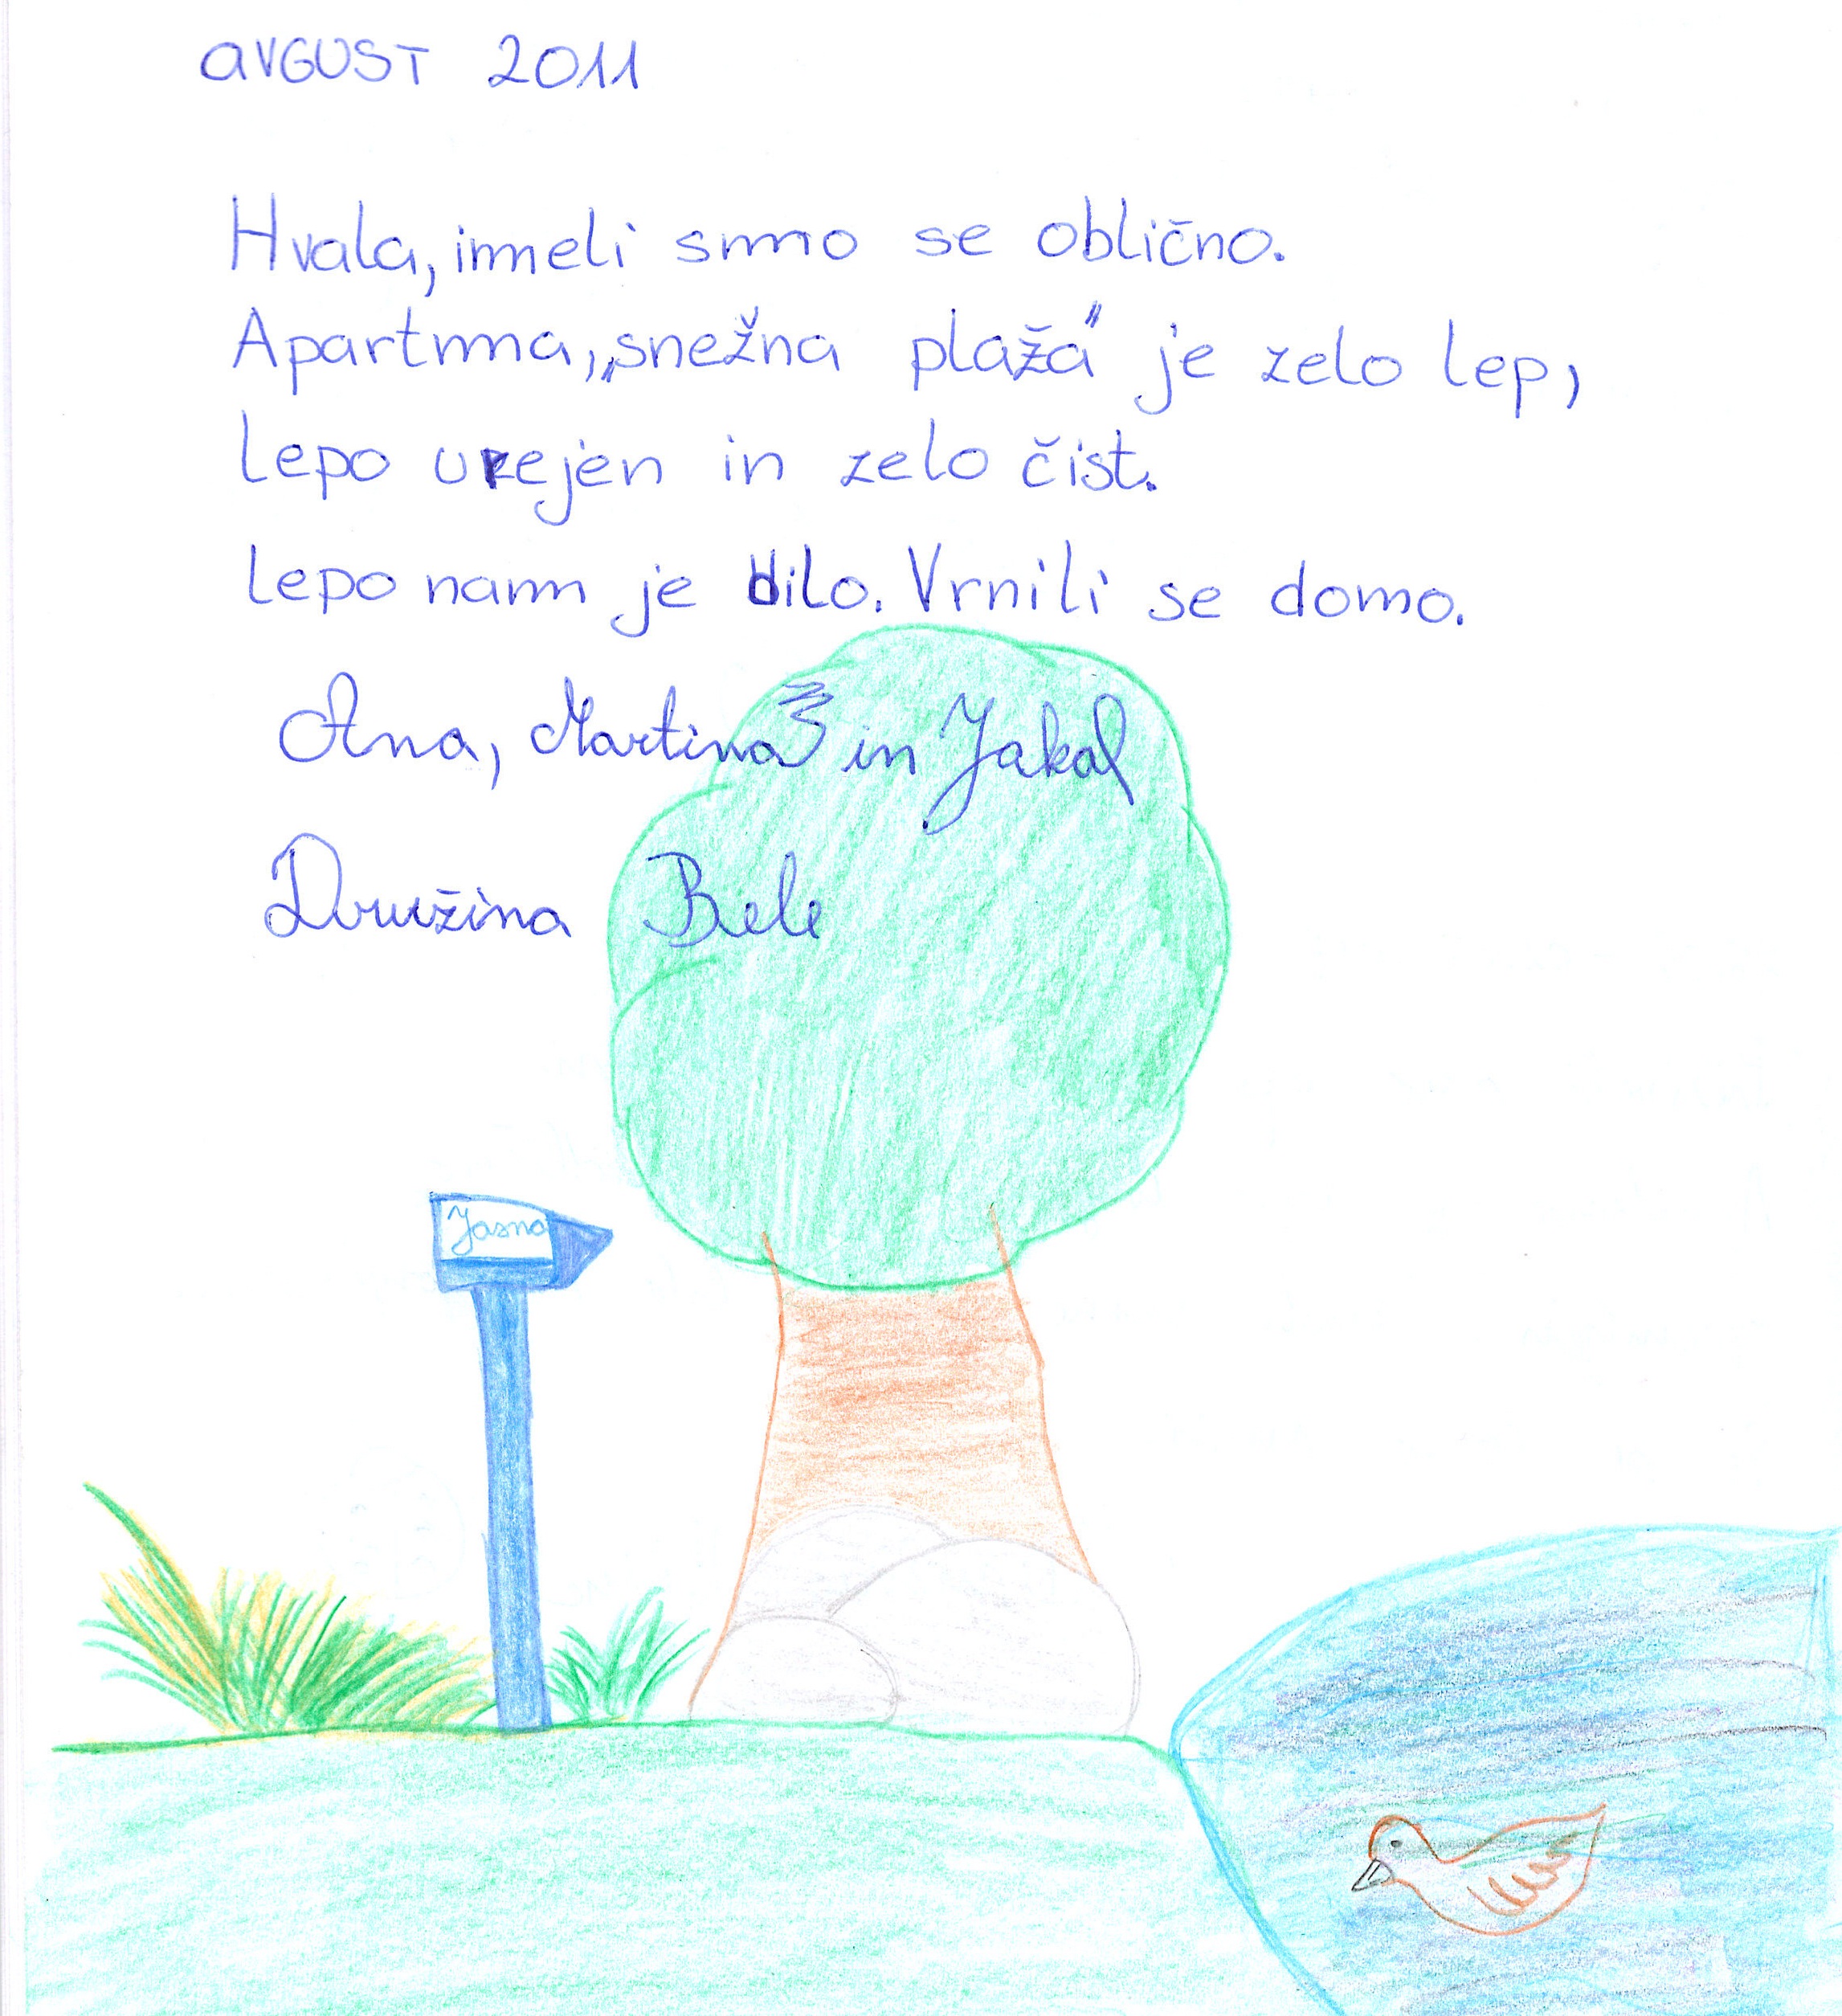 AVGUST 2011
Hvala, imeli smo se oblično.
Apartma, „snežna plaža" je zelo lep,
lepo urejen in zelo čist.
Lepo nam je bilo. Vrnili se domo.
Ana, Martina in Jaka
Družina Bele
Jasna